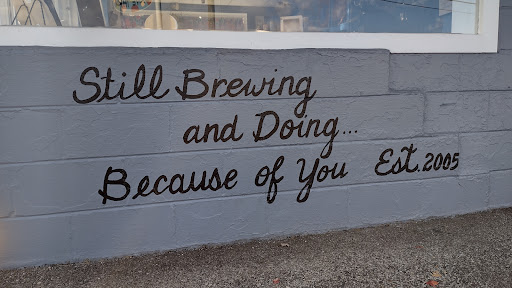 Still Brewing
and Doing...
Because of You Est. 2005